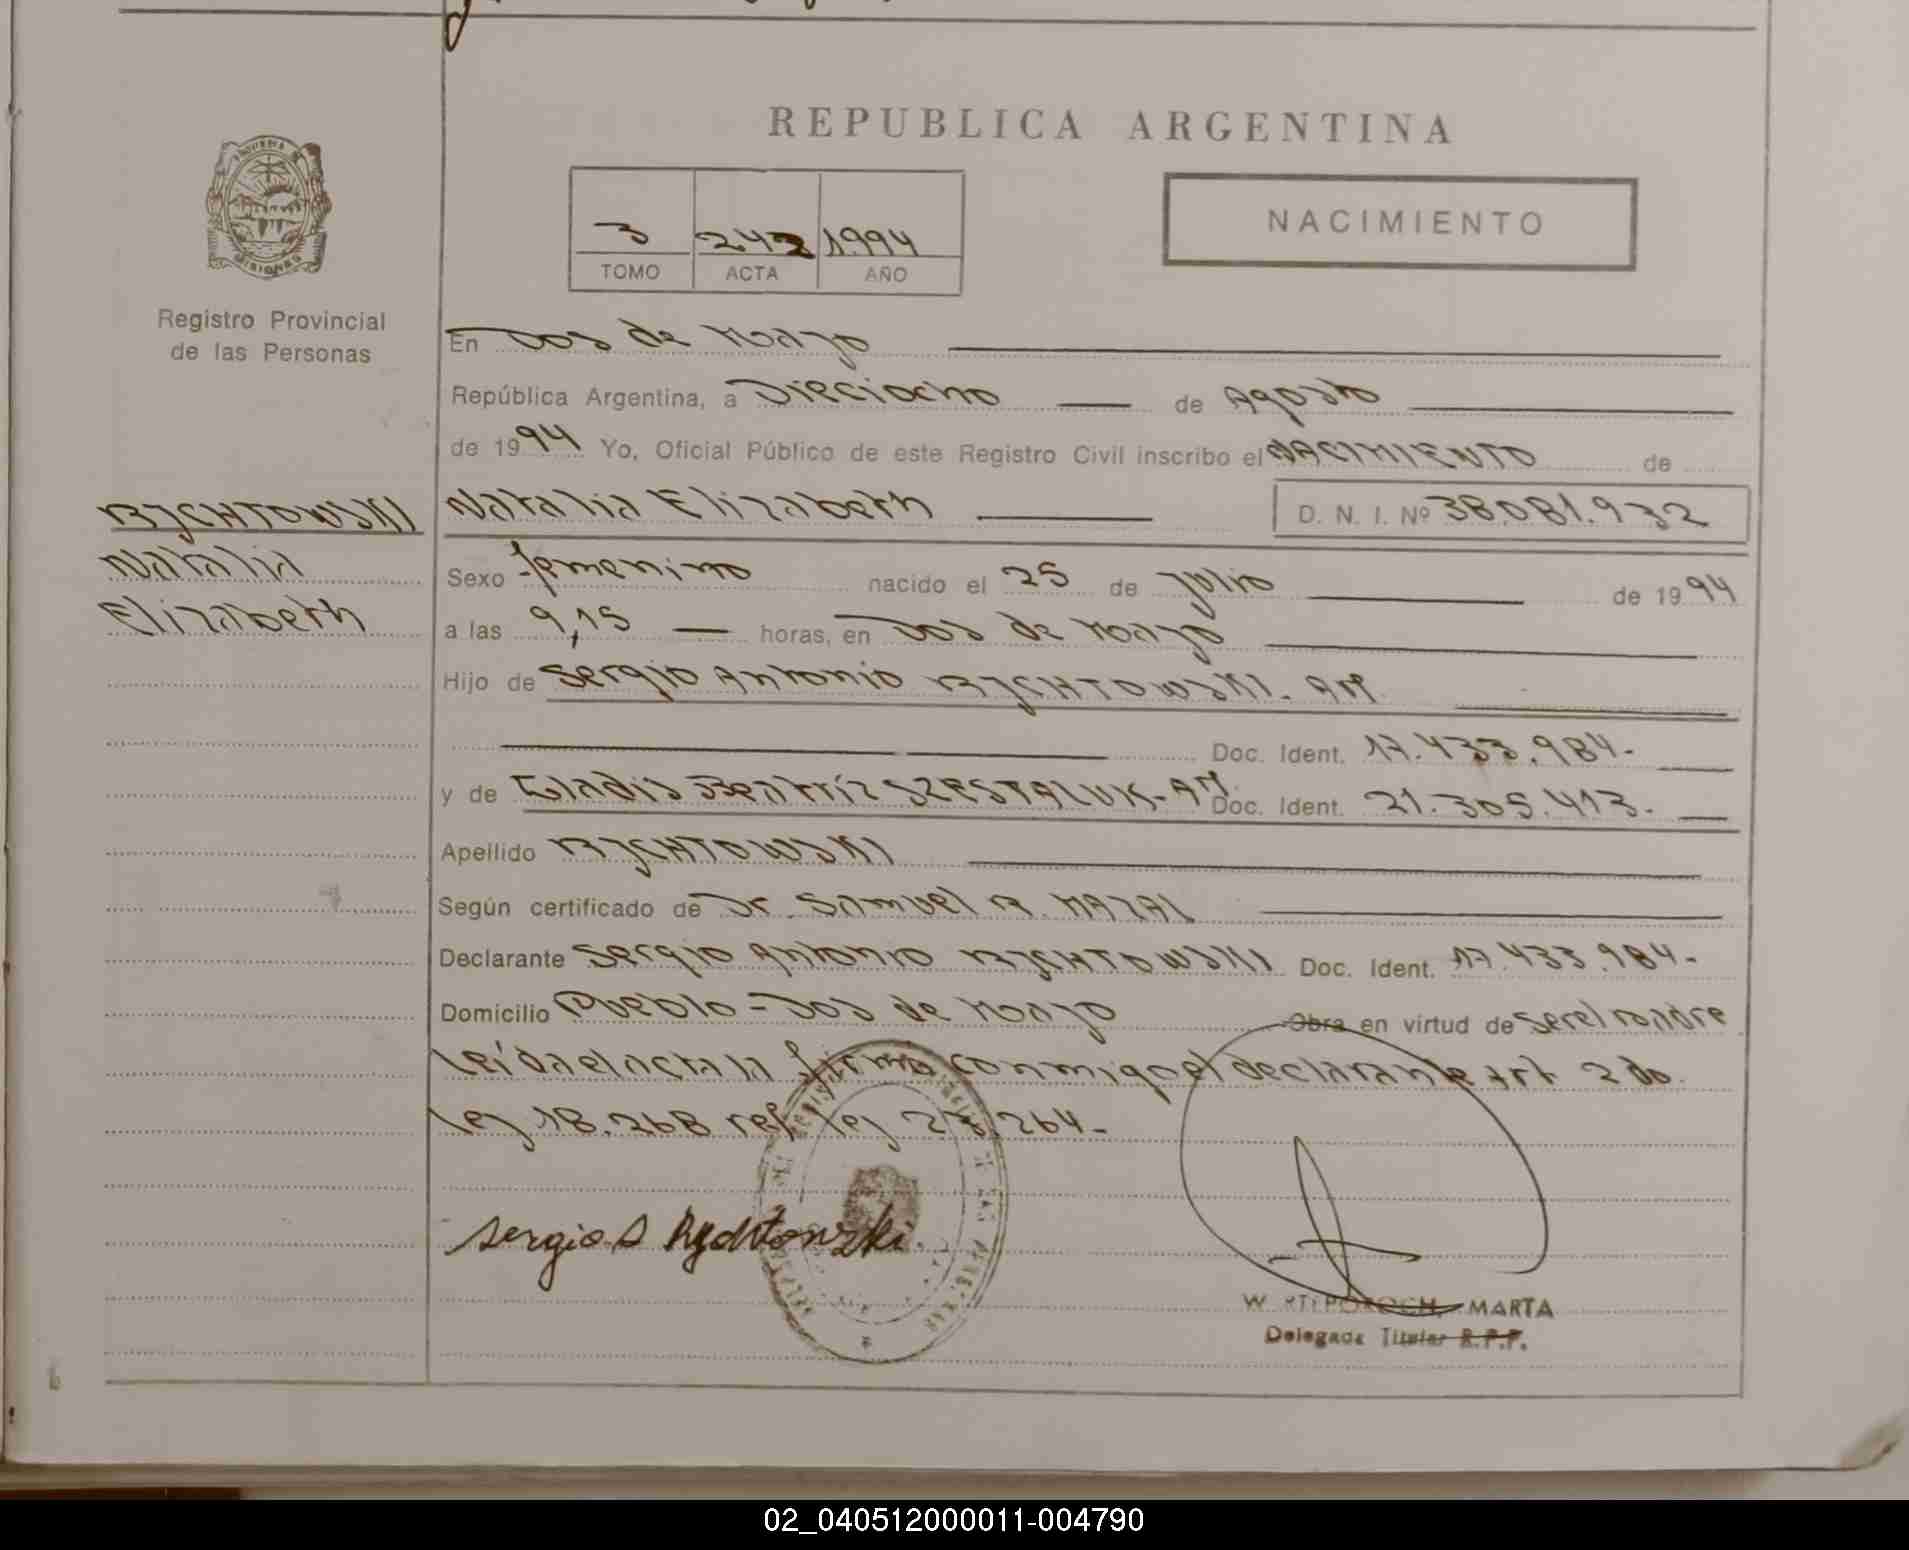 REPUBLICA ARGENTINA
3 242 1994
TOMO ACTA AÑO
NACIMIENTO
MISIONES
Registro Provincial
de las Personas
En Dos de Mayo
República Argentina, a Dieciocho de Agosto
de 1994 Yo, Oficial Público de este Registro Civil inscribo el NACIMIENTO de
RYCHTOWSKI Natalia Elizabeth D. N. I. Nº 38.081.932
Natalia
Elizabeth
Sexo femenino nacido el 25 de julio de 1994
a las 9,15 horas, en Dos de Mayo
Hijo de Sergio Antonio RYCHTOWSKI. AM
Doc. Ident. 17.433.984-
y de Gladis Beatríz SZESTALUK-AM. Doc. Ident. 21.305.413-
Apellido RYCHTOWSKI
Según certificado de Dr. Samuel R. MAZAL
Declarante Sergio Antonio RYCHTOWSKI Doc. Ident. 17.433.984-
Domicilio Pueblo-Dos de Mayo Obra en virtud de ser el padre
leída el acta la firma conmigo el declarante Art 2do.
ley 18.268 ref. ley 23.264-
Sergio A Rychtowski.
MARTA
Delegada Titular R.P.P.
02_040512000011-004790